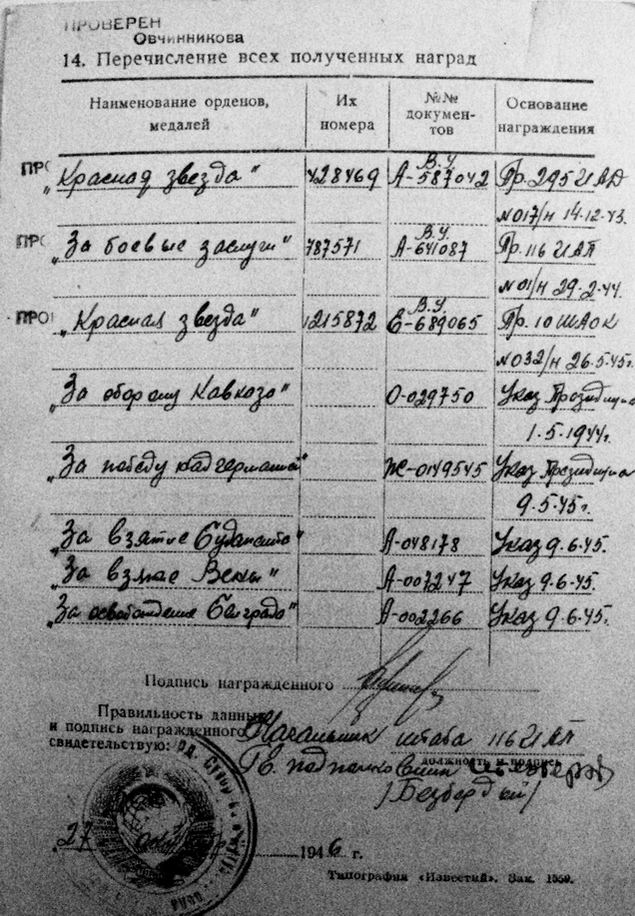 ПРОВЕРЕН
Овчинникова
14. Перечисление всех полученных наград
Наименование орденов, медалей Их номера №№ документов Основание награждения
ПРО „Красная звезда" 428469 В.У. А-587042 Пр. 295 ИАД
№017/н 14.12.43.
ПРО „За боевые заслуги" 787571 В.У. А-641087 Пр. 116 ИАП
№01/н 29.2.44.
ПРОВ „Красная звезда" 1215872 В.У. Е-689065 Пр. 10 ШАОК
№032/н 26.5.45г.
„За оборону Кавказа" О-029750 Указ Президиума
1.5.1944г.
„За победу над Германией" Ж-0149545 Указ Президиума
9.5.45г.
„За взятие Будапешта" А-048178 Указ 9.6.45.
„За взятие Вены" А-007247 Указ 9.6.45.
„За освобождение Белграда" А-002266 Указ 9.6.45г.
Подпись награжденного
Правильность данных
и подпись награжденного
свидетельствую:
Начальник штаба 116 ИАП
должность и подпись
Гв. подполковник
/Безбердый/
„27
1946 г.
Типография «Известий». Зак. 1559.